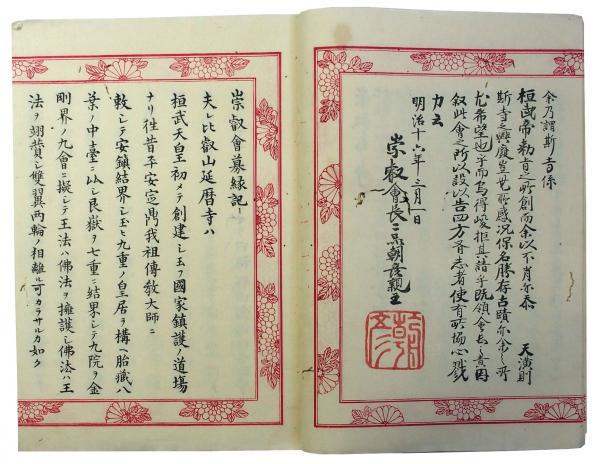 余乃謂斯寺係
桓武帝勅旨之所創而余以不肖亦忝　天潢則
斯寺之興廢豈無所感况保名勝存古蹟亦余之所
尤希望也乎而焉得峻拒其請乎既領會長之意因
叙此會之所以設以告四方有志者使有所協心戮
力云
明治十六年三月一日
崇叡會長二品朝彦親王
朝彦
崇叡會募縁記
夫レ比叡山延暦寺ハ
桓武天皇初メテ創建シ玉フ國家鎮護ノ道場
ナリ徃昔平安奠都我祖傳教大師ニ
敕シテ安鎮結界シ玉ヒ九重ノ皇居ヲ構ヘ胎藏八
葉ノ中臺ニ以シ艮嶽ヲ七重ニ結界シテ九院ヲ金
剛界ノ九會ニ擬シテ王法ハ佛法ヲ擁護シ佛法ハ王
法ヲ翊賛シ雙翼両輪ノ相離ル可カラサルカ如ク